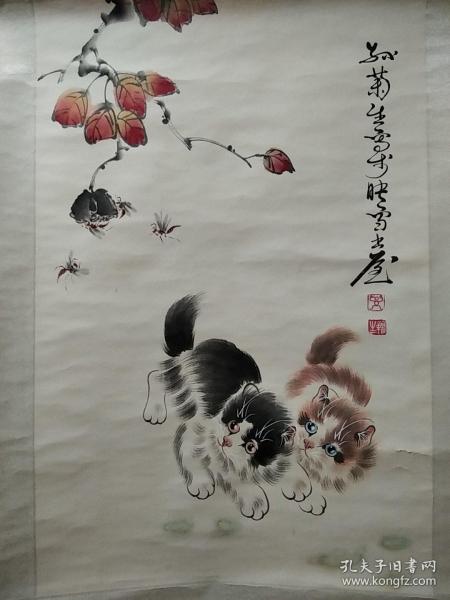 孙菊生写于映雪书屋
孔夫子旧书网
www.kongfz.com